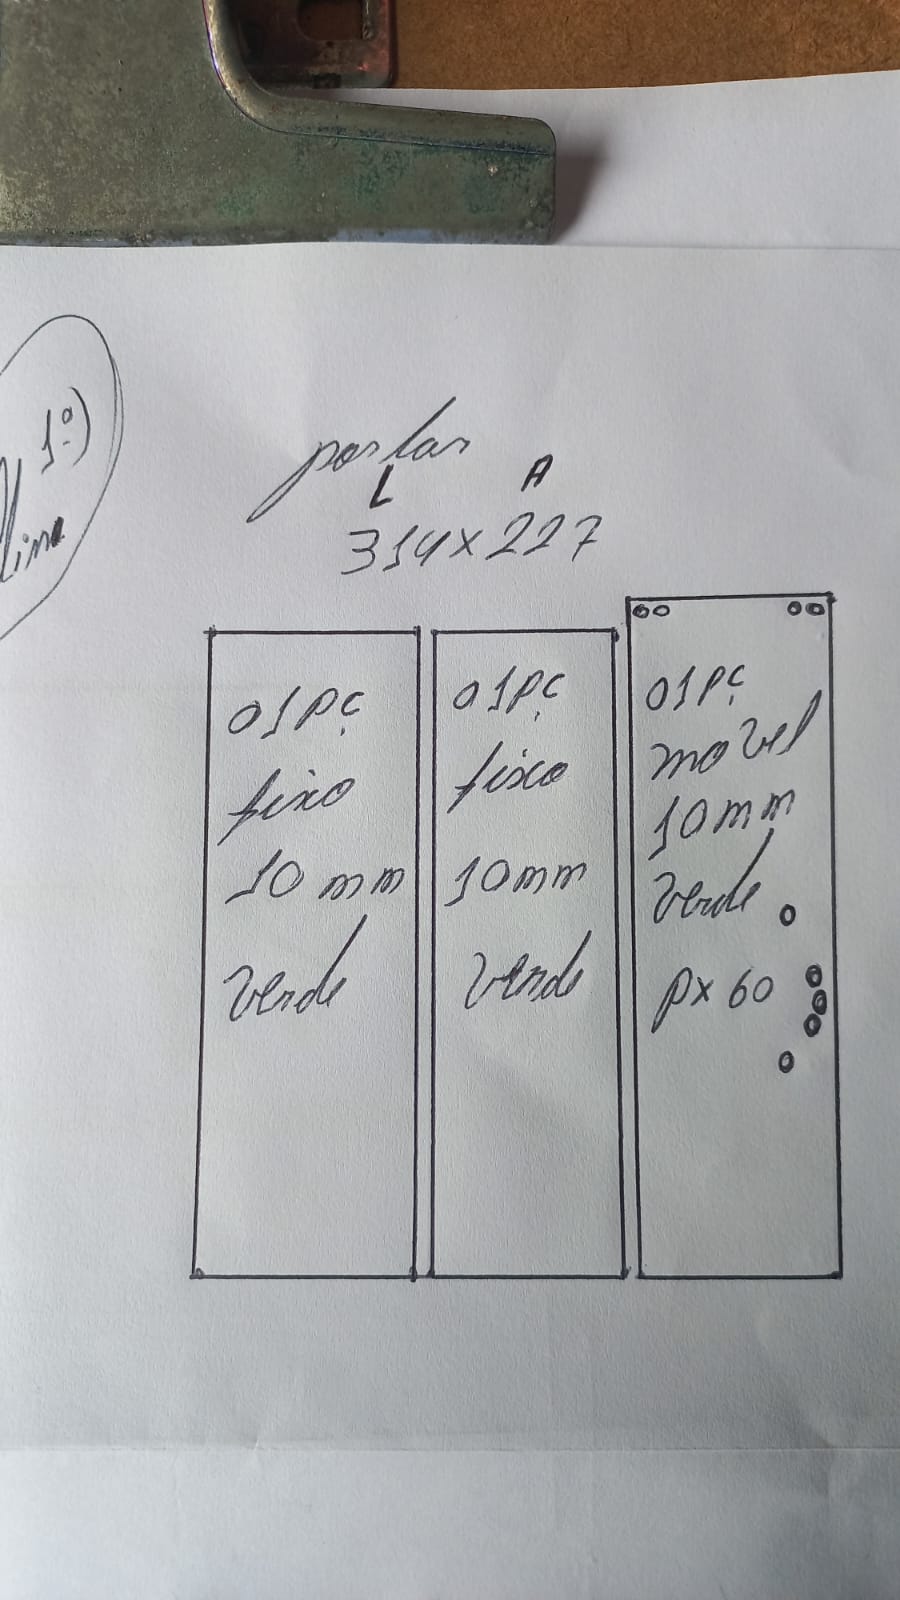 1º)
portas
L A
314x227
01pç
fixo
10 mm
verde
01pç
fixo
10mm
verde
01pç
movel
10mm
verde
px 60